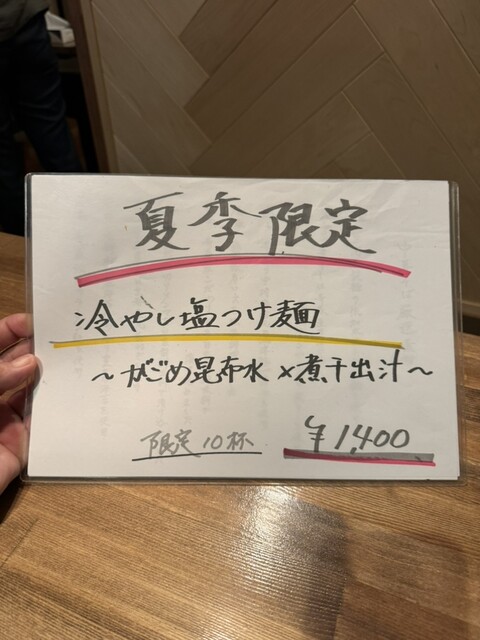 夏季限定
冷やし塩つけ麺
～がごめ昆布水×煮干出汁～
限定10杯
¥1,400